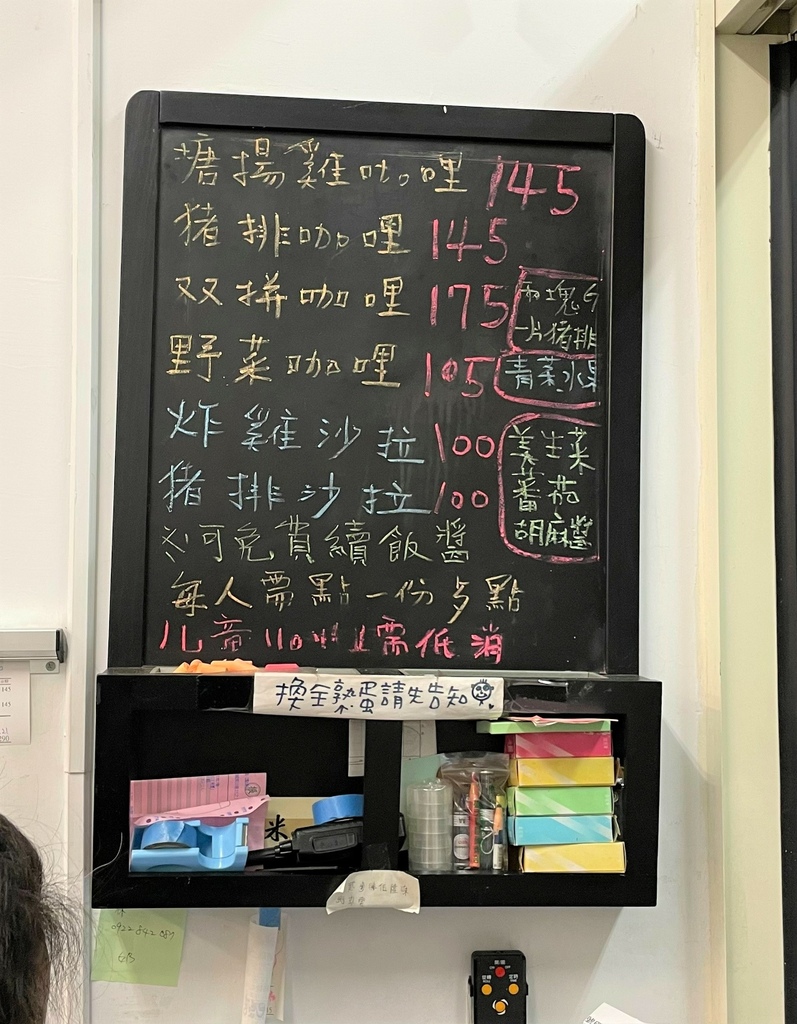 塘揚雞咖哩 145
猪排咖哩 145
双拼咖哩 175
兩塊
一片猪排
野菜咖哩 105
青菜水果
炸雞沙拉 100
猪排沙拉 100
生菜
番茄
胡麻醬
可免費續飯醬
每人需點一份
儿童110 需低消
換全熟蛋請先告知
米
0922 842 087